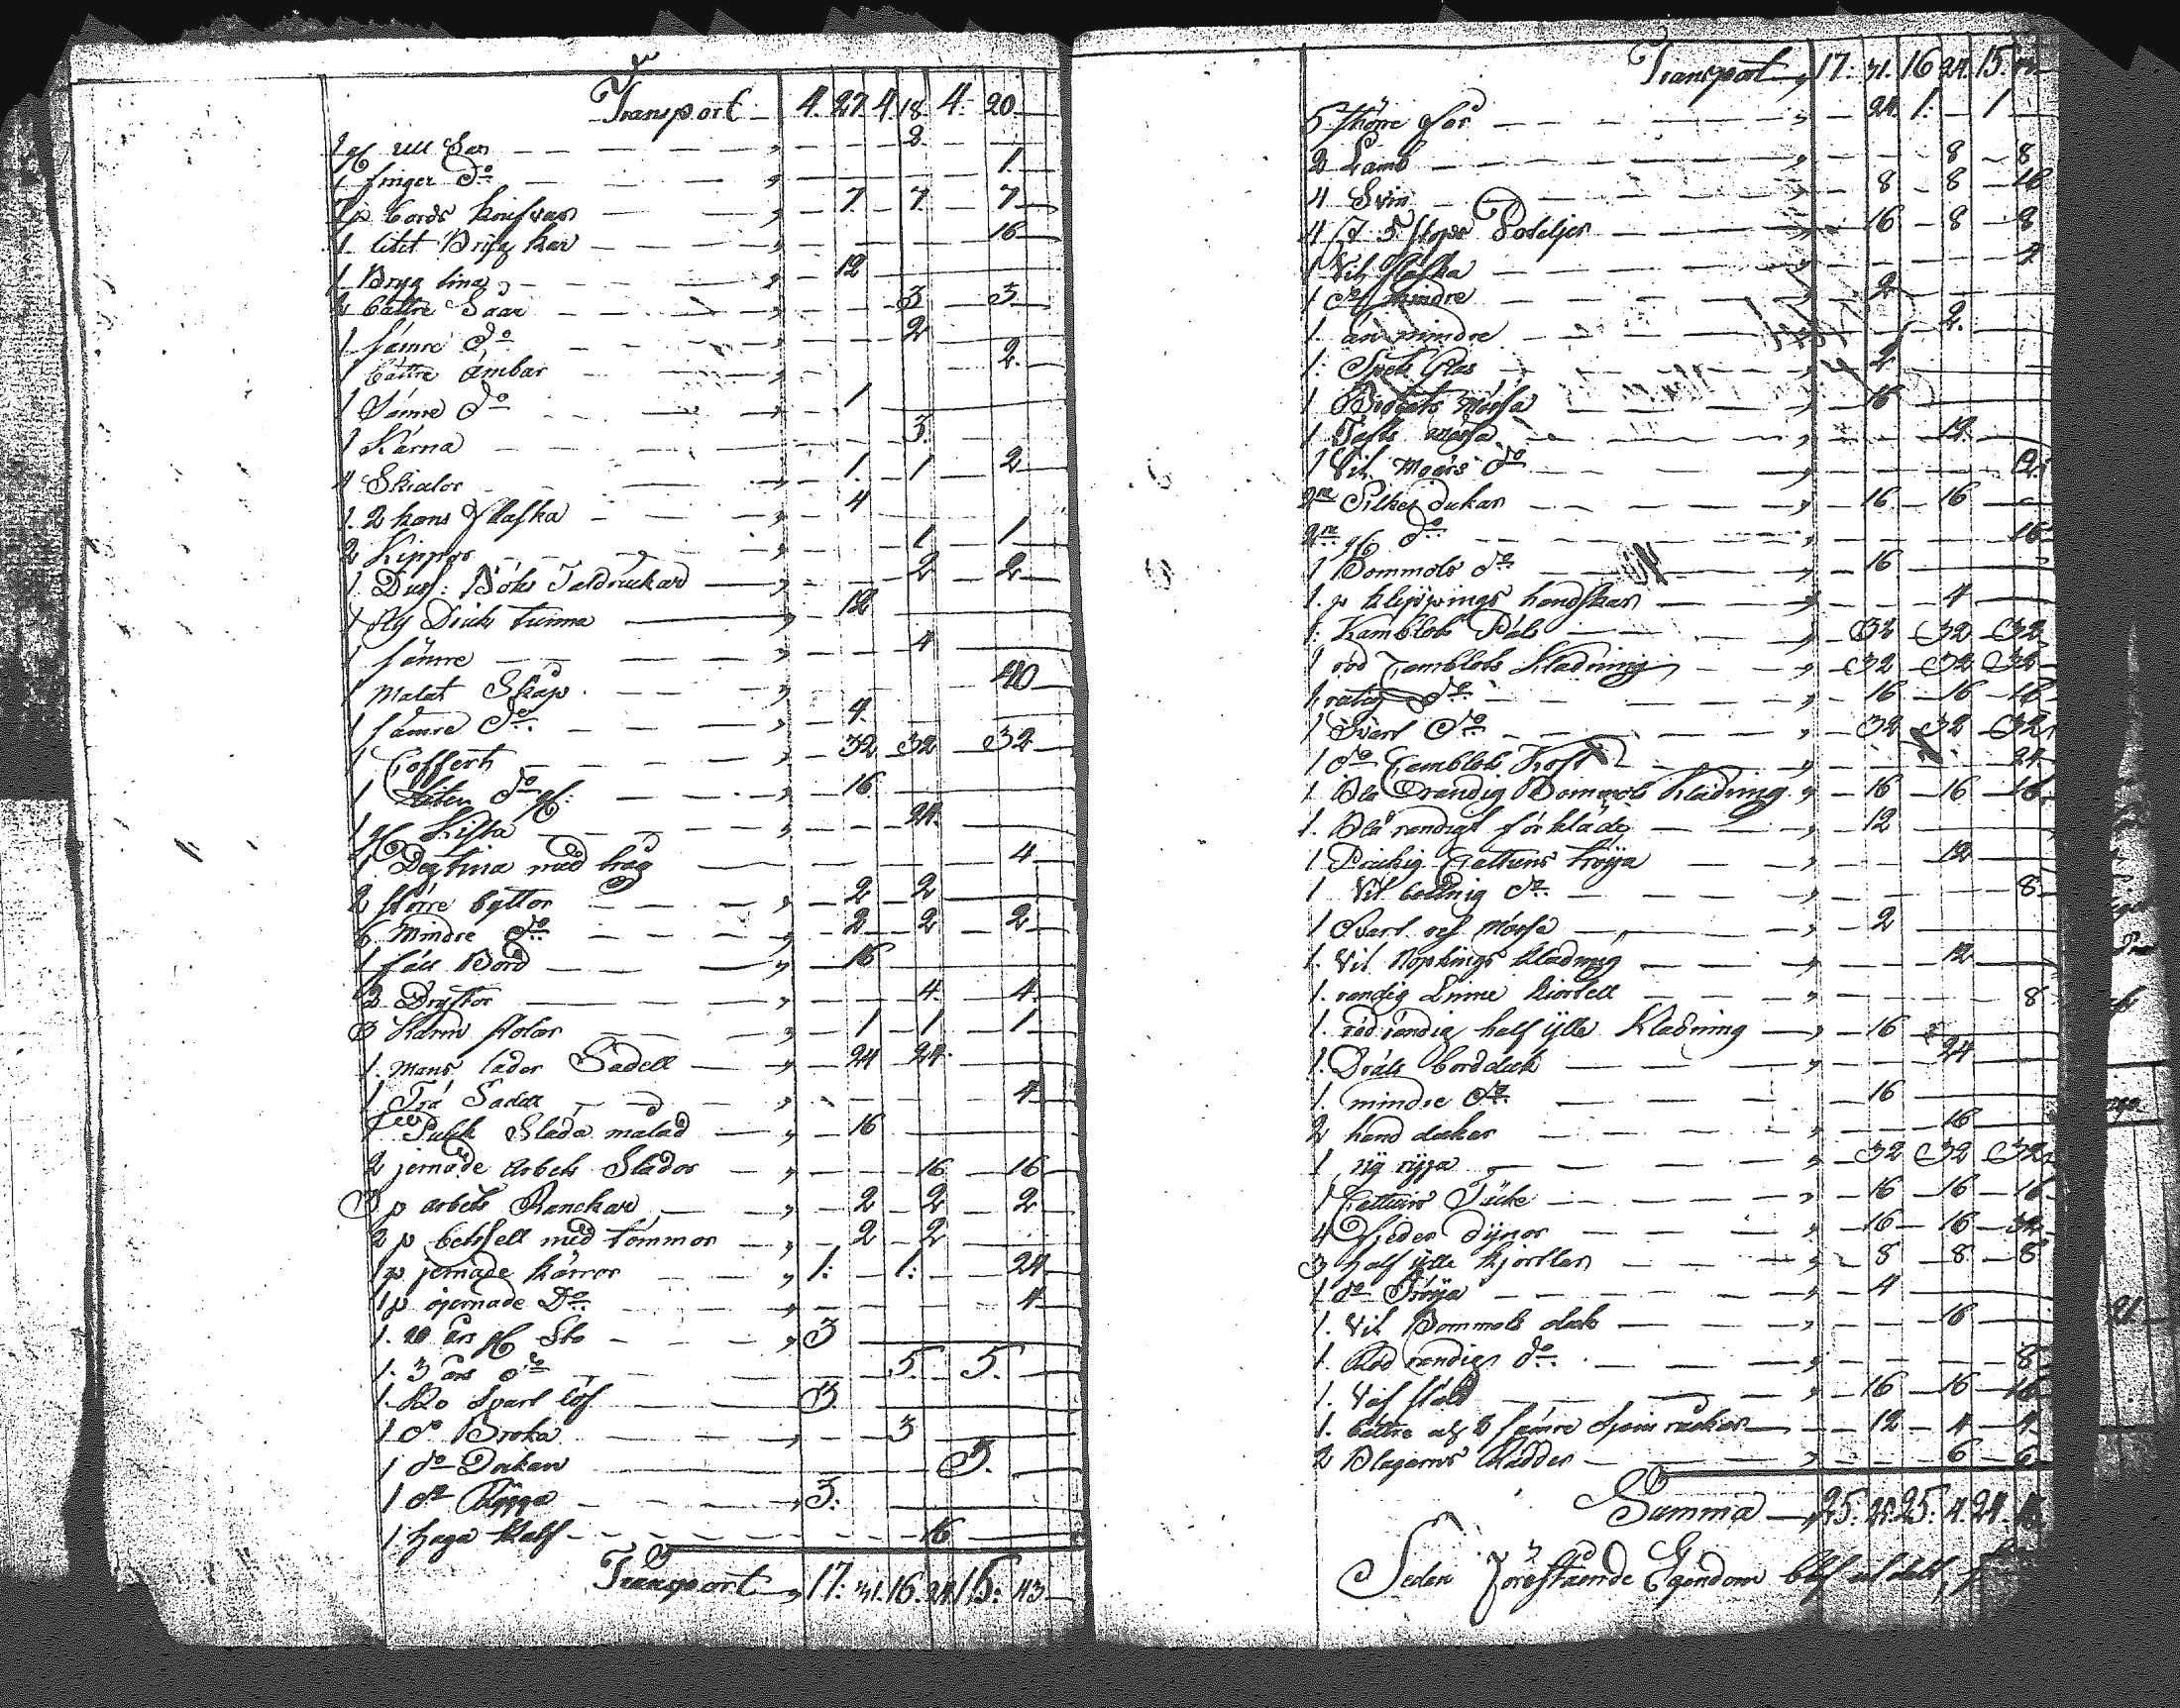 Transport 4. 27. 4. 18. 4. 20
2 gl ull Sax 2
1 finger do 1
2 p bords knifvar 7 7 7
1 litet Brygg kar 16
1 Brygg tina 12
2 bättre Såar 3 3
1 sämre do 2
1 bättre ämbar 2
1 Sämre do 1
1 Kärna 3
4 Skålor 1 1 2
1. 2 kans Flaska 4
2 Kippor 1 1
1. Duss: Böks Taldrickar 2 2
1 Ny Dricks tunna 12
1 sämre 4
1 Malat Skåp 40
1 sämre do 4
1 Coffert 32 32 32
1 liten do gl: 16
1 gl Kista 24
1 Degtina med tråg 4
2 större byttor 2 2
6 Mindre do 2 2 2
1 fäll Bord 16
2 Dryftor 4 4
3 Karm stolar 1 1 1
1. mans läder Sadell 24 24
1 Trä Sadell 4
1 Släda målad 16
2 jernade arbets Slädor 16 16
3 p arbets Ranckar 2 2 2
2 p betsell med tömmor 2 2
1 p jernade kärror 1: 1: 24
1 p ojernade Do 4
1. 10 års gl Sto 3
1. 3 års do 5 5
1. Ko Svart löf 3
1 do Broka 3
1 do Dockan 5
1 do Rygga 3
1. haga kalf 16
Transport 17: 31. 16. 24. 15: 43
Transport 17: 31. 16 24. 15.
5 större får 24 1. 1
2 Lamb 8 8
4 Svin 8 8 16
4 st 5 stops Boteljer 16 8 8
1 Vit flaska 4
1 do mindre 2
1 än mindre 2
1: Spets Glas 2
1 mössa 16
1 Tafts mössa 12
1 Vit Moärs do 12
2ne Silkes dukar 16 16
2ne gl. do 16
1 Bommols do 16
1. p klippings handskar 4
1. Kamblots Päls 32 32 32
1 röd Camblots kladning 32 32 32
1 rutig do 16 16 16
1 Svart do 32 32 32
1 do Camblots 24
1 Blå randig Bommols kladning 16 16 16
1. Blå randigt förkläde 12
1 Prickig Cattuns tröija 12
1 Vit bottnig do 8
1 Svart mössa 2
1. Vit kladning 12
1. randig Linne kiortell 8
1. röd randig half ylle Kladning 16
1. Dräls bordduk 24
1. mindre do 16
2 hand dukar 16
1 ny ryja 32 32 32
1 Cattuns Täcke 16 16 16
4 Fjeder Dynor 16 16 32
3 half ylle kjortlar 8 8 8
1 do Tröija 4
1. Vit Bommols duk 16
1. Röd randig do 8
1. Väf stol 16 16 16
1. bättre och 2 sämre Spin råckar 12 4 4
2 Blagarns 6 6
Summa 25. 25. 4. 24.
Sedan Förestående Egendom blef